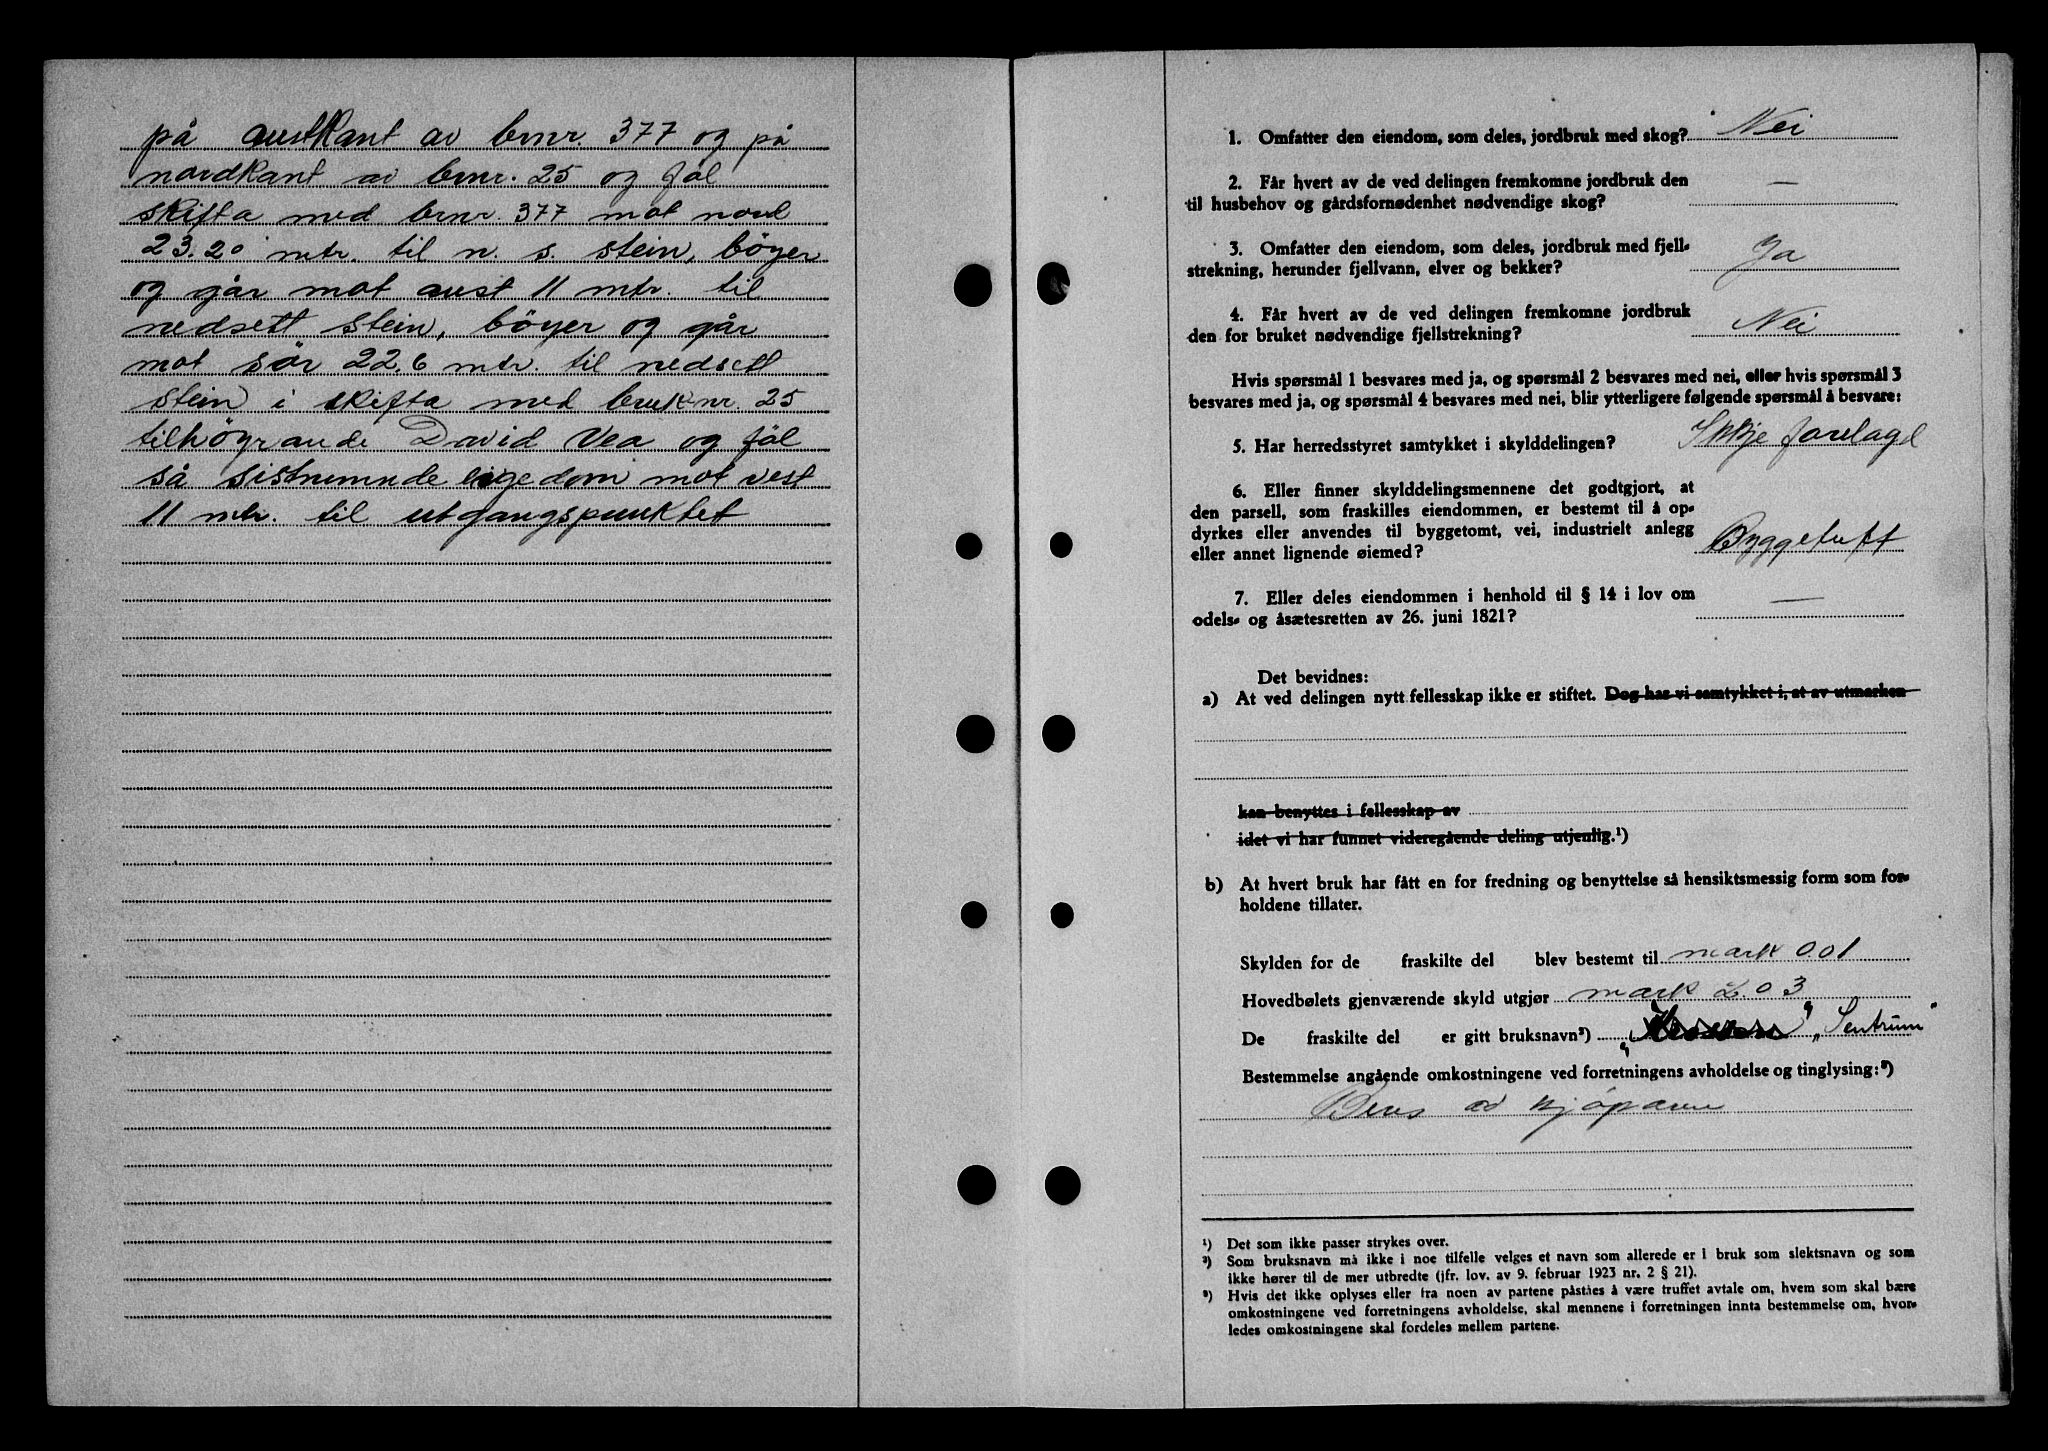 på austkant av brnr. 377 og på
nordkant av brnr. 25 og föl
skifta med brnr. 377 mot nord
23.20 mtr. til n. s. stein, böyer
og går mot aust 11 mtr. til
nedsett stein, böyer og går
mot sör 22,6 mtr. til nedsett
stein i skifta med bruknr. 25
tilhöyrande David Vea og föl
så sistnemnde eigedom mot vest
11 mtr. til utgangspunktet
1. Omfatter den eiendom, som deles, jordbruk med skog? Nei
2. Får hvert av de ved delingen fremkomne jordbruk den
til husbehov og gårdsfornødenhet nødvendige skog? —
3. Omfatter den eiendom, som deles, jordbruk med fjell-
strekning, herunder fjellvann, elver og bekker? Ja
4. Får hvert av de ved delingen fremkomne jordbruk
den for bruket nødvendige fjellstrekning? Nei
Hvis spørsmål 1 besvares med ja, og spørsmål 2 besvares med nei, eller hvis spørsmål 3
besvares med ja, og spørsmål 4 besvares med nei, blir ytterligere følgende spørsmål å besvare:
5. Har herredsstyret samtykket i skylddelingen? Ikkje forelagd
6. Eller finner skylddelingsmennene det godtgjort, at
den parsell, som fraskilles eiendommen, er bestemt til å op-
dyrkes eller anvendes til byggetomt, vei, industrielt anlegg
eller annet lignende øiemed? Byggetuft
7. Eller deles eiendommen i henhold til § 14 i lov om
odels- og åsætesretten av 26. juni 1821? —
Det bevidnes:
a) At ved delingen nytt fellesskap ikke er stiftet. Dog har vi samtykket i, at av utmarken
kan benyttes i fellesskap av
idet vi har funnet videregående deling utjenlig.¹)
b) At hvert bruk har fått en for fredning og benyttelse så hensiktsmessig form som for-
holdene tillater.
Skylden for de fraskilte del blev bestemt til mark 0.01
Hovedbølets gjenværende skyld utgjør mark 2.03
De fraskilte del er gitt bruksnavn²) „Sentrum"
Bestemmelse angående omkostningene ved forretningens avholdelse og tinglysing:³)
Beres av kjöparen
¹) Det som ikke passer strykes over.
²) Som bruksnavn må ikke i noe tilfelle velges et navn som allerede er i bruk som slektsnavn og som
ikke hører til de mer utbredte (jfr. lov. av 9. februar 1923 nr. 2 § 21).
³) Hvis det ikke oplyses eller fra noen av partene påståes å være truffet avtale om, hvem som skal bære
omkostningene ved forretningens avholdelse, skal mennene i forretningen innta bestemmelse om, hvor-
ledes omkostningene skal fordeles mellem partene.